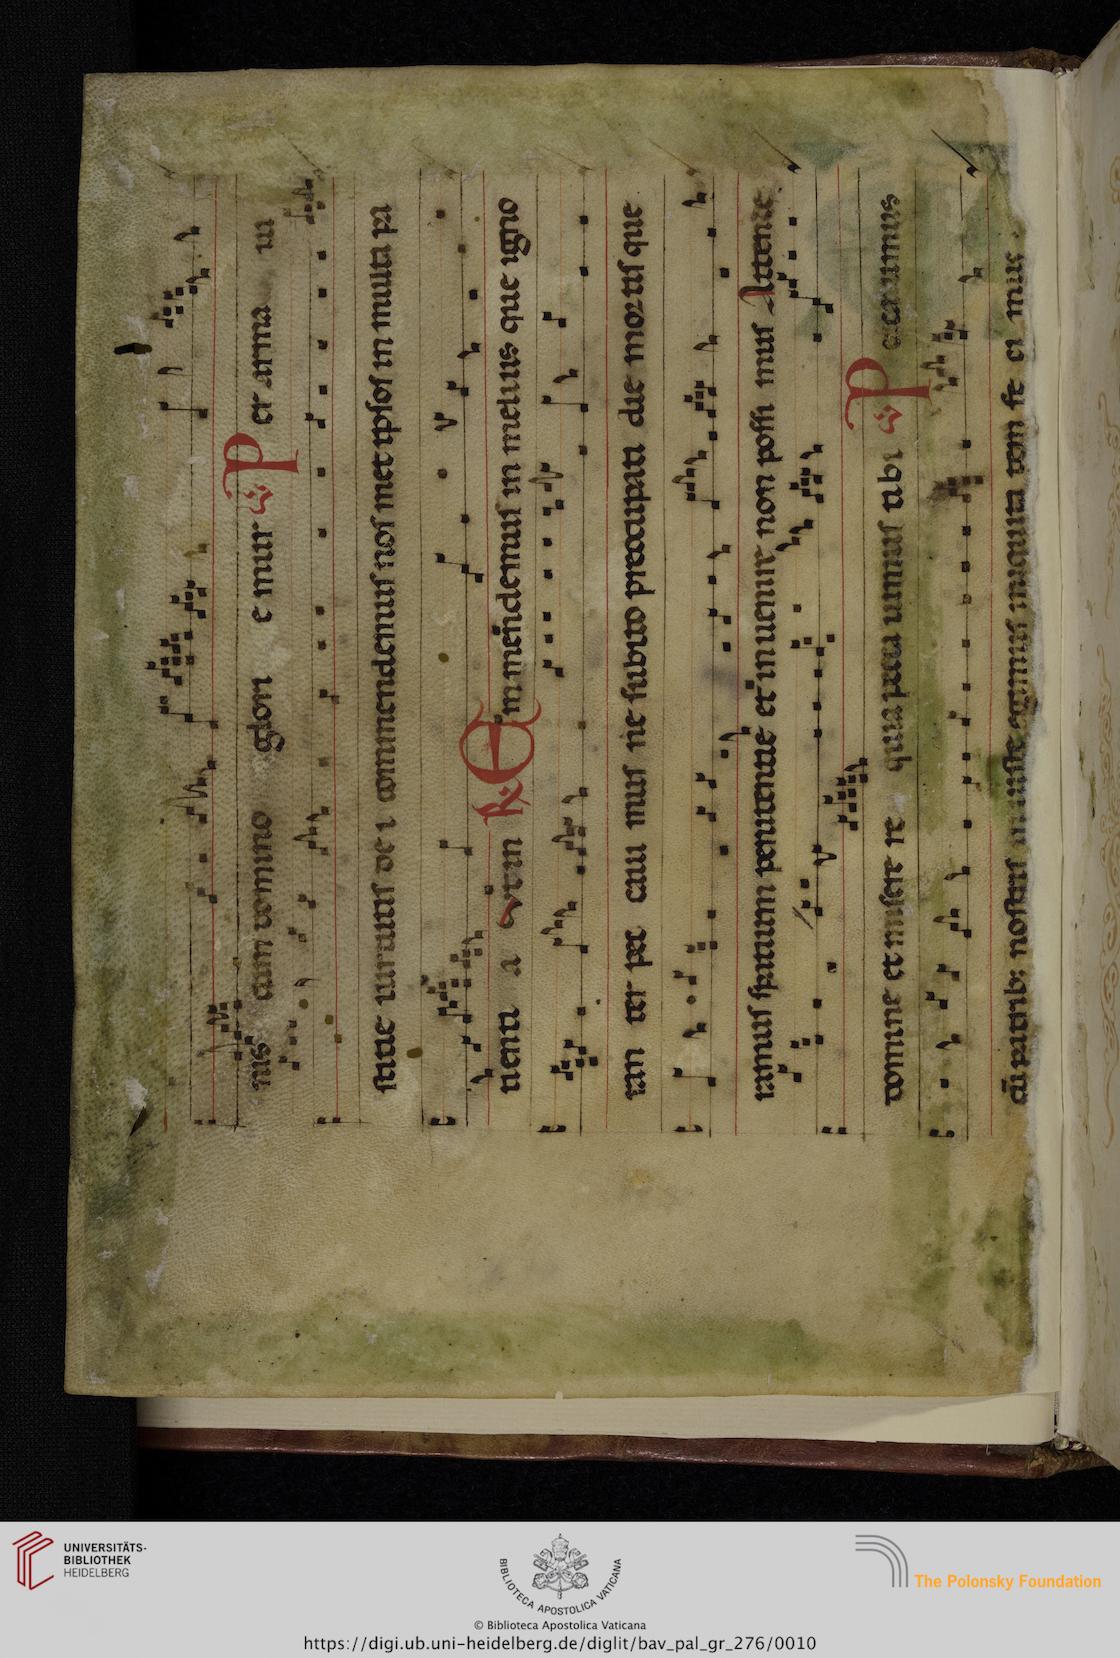 nis cum domino glori e mur ℣ P er arma iu
stitie uirtutis de i commendemus nos met ipsos in multa pa
tienti a vtim ℟ E mmendemus in melius que igno
ran ter pec caui mus ne subito preoccupati die mortis que
ramus spatium penitentie et in uenire non possi mus Attende
domine et miserere re quia peccauimus tibi ℣ P eccauimus
cū patrib; nostris iniuste egimus iniquita tem fe ci mus.
UNIVERSITÄTS-
BIBLIOTHEK
HEIDELBERG
BIBLIOTECA APOSTOLICA VATICANA
The Polonsky Foundation
© Biblioteca Apostolica Vaticana
https://digi.ub.uni-heidelberg.de/diglit/bav_pal_gr_276/0010